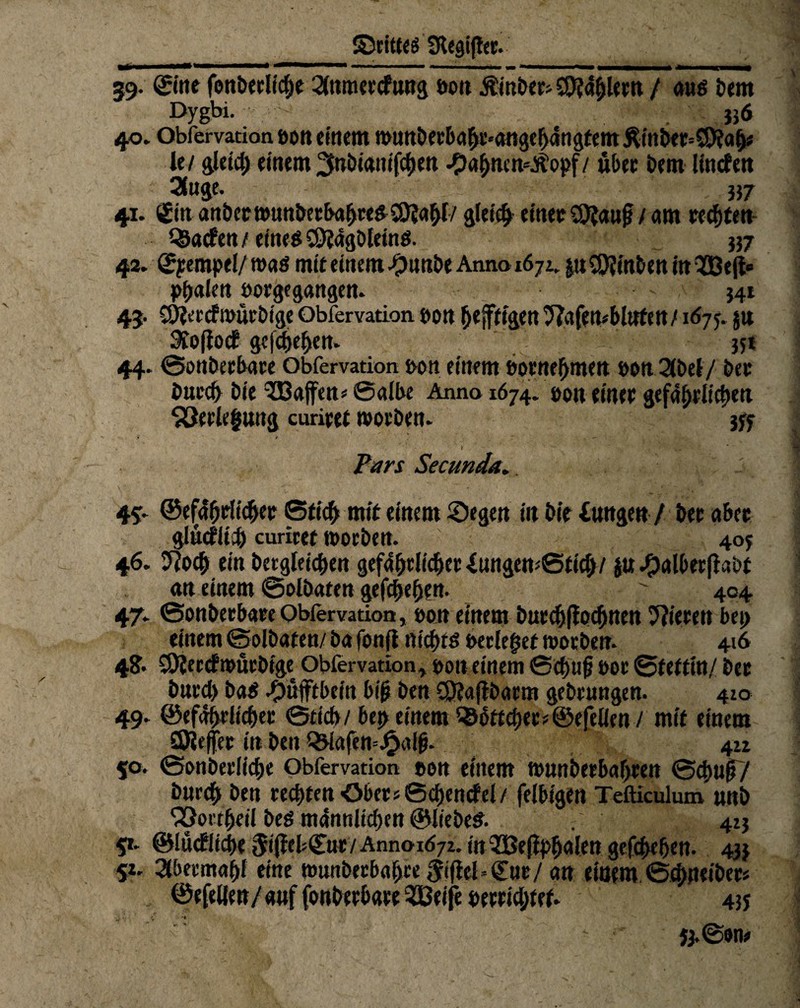 Drittes Register.
39. Eine sonderliche Anmerckung von Kinder-Mählern / aus dem
Dygbi. 336
40. Observation von einem wunderbahr-angehängtem Kinder-Mah-
le/ gleich einem Indianischen Hahnen-Kopf/ über dem lincken
Auge. 337
41. Ein ander wunderbahres Mahl/ gleich einer Mauß / am rechten
Backen / eines Mägdleins. 337
42. Exempel/ was mit einem Hunde Anno 1671. zu Minden in West-
phalen vorgegangen. 341
43. Merckwürdige Observation von hefftigen Nasen-bluten / 1675. zu
Rostock geschehen. 351
44. Sonderbare Observation von einem vornehmen von Adel / der
durch die Waffen-Salbe Anno 1674. von einer gefährlichen
Verletzung curiret worden. 355
Pars Secunda.
45. Gefährlicher Stich mit einem Degen in die Lungen / der aber
glücklich curiret worden. 405
46. Noch ein dergleichen gefährlicher Lungen-Stich/ zu Halberstadt
an einem Soldaten geschehen. 404
47. Sonderbare Observation, von einem durchstochnen Nieren bey
einem Soldaten/ da sonst nichts verletzet worden. 416
48. Merckwürdige Observation, von einem Schuß vor Stettin/ der
durch das Hüfftbein biß den Mastdarm gedrungen. 420
49. Gefährlicher Stich / bey einem Böttcher-Gesellen / mit einem
Messer in den Blasen-Halß. 422
50. Sonderliche Observation von einem wunderbahren Schuß /
durch den rechten Ober-Schenckel / selbigen Testiculum und
Vortheil des männlichen Gliedes. 423
51. Glückliche Fistel-Cur / Anno 1672. in Westphalen geschehen. 433
52. Abermahl eine wunderbahre Fistel-Cur / an einem Schneider-
Gesellen / auf sonderbare Weise verrichtet. 435
53. Son-